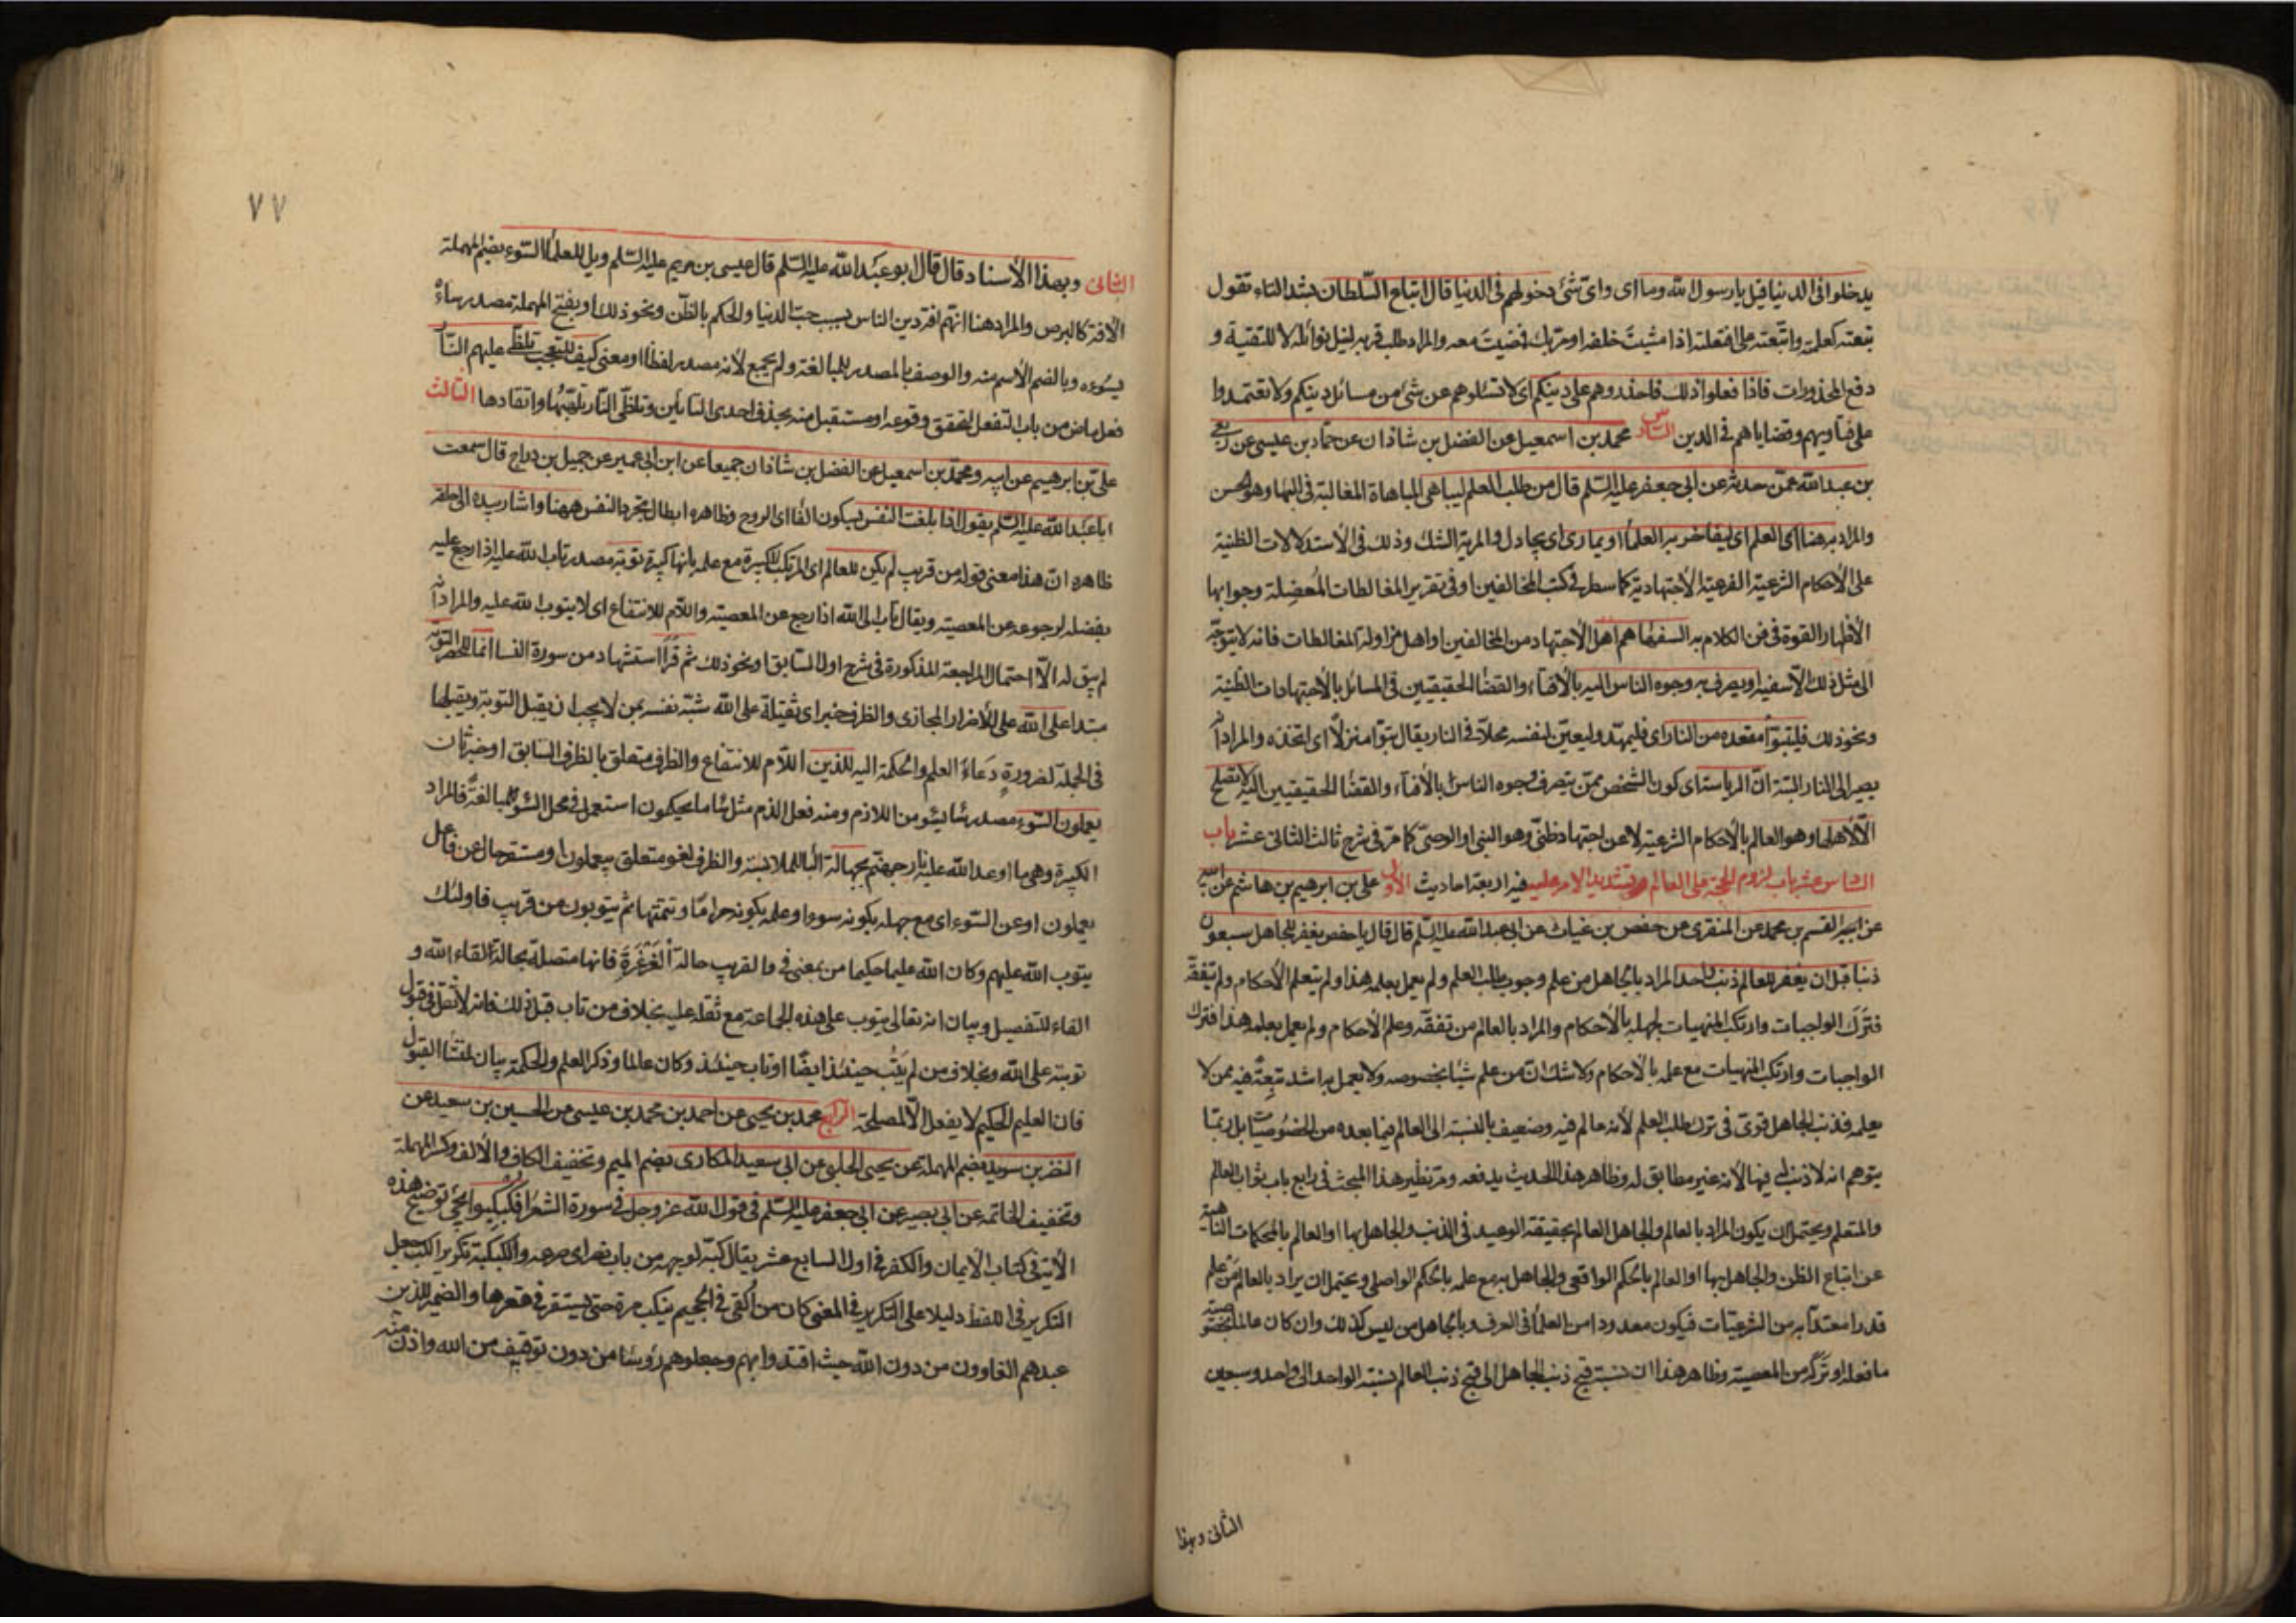 يدخلوا فى الدنيا قيل يارسول الله وما اى واى شئ دخولهم فى الدنيا قال اتباع السلطان بشد التاء تقول
تبعته كعلمته واتبعته على افتعلته اذا مشيت خلفه او مر بك فمضيت معه والمراد طلب قربه لنيل نوائله لا للتقية و
دفع المحذورات فاذا فعلوا ذلك فاحذروهم على دينكم اى لا تسئلوهم عن شئ من مسائل دينكم ولا تعتمدوا
على فتاويهم وقضاياهم فى الدين السادس محمد بن اسمعيل عن الفضل بن شاذان عن حماد بن عيسى عن ربعى
بن عبد الله عمن حدثه عن ابى جعفر عليه السلم قال من طلب العلم ليباهى المباهاة المغالبة فى البهاء وهو الحسن
والمراد به هنا العلم اى ليفاخر به العلما او يمارى اى يجادل والمرية الشك وذلك فى الاستدلالات الظنية
على الاحكام الشرعية الفرعية الاجتهادية كما سطر فى كتب المخالفين او فى تقرير المغالطات المعضلة وجوابها
لاظهار القوة فى فن الكلام به السفها هم اهل الاجتهاد من المخالفين او اهل مزاولة المغالطات فانه لا يتوجه
الى مثل ذلك الا سفيه او يصرف به وجوه الناس اليه بالافتاء والقضا الحقيقيين فى المسائل بالاجتهادات الظنية
ونحو ذلك فليتبوأ مقعده من النار اى فليمهد وليعين لنفسه محلا فى النار يقال تبوأ منزلا اى اتخذه والمراد انه
يصير الى النار البتة ان الرياسة اى كون الشخص ممن يتصرف وجوه الناس بالافتاء والقضا الحقيقيين اليه لا تصلح
الا لاهلها وهو العالم بالاحكام الشرعية لا عن اجتهاد ظنى وهو النبى او الوصى كما مر فى شرح ثالث الثانى عشر باب
السادس عشر باب لزوم الحجة على العالم وتشديد الامر عليه فيه اربعة احاديث الاول على بن ابرهيم بن هاشم عن ابيه
عن القسم بن محمد عن المنقرى عن حفص بن غياث عن ابى عبد الله عليه السلم قال قال يا حفص يغفر للجاهل سبعون
ذنبا قبل ان يغفر للعالم ذنب واحد المراد بالجاهل من علم وجوب طلب العلم ولم يعمل بعلمه هذا ولم يتعلم الاحكام ولم يتفقه
فترك الواجبات وارتكب المنهيات لجهله بالاحكام والمراد بالعالم من تفقه وعلم الاحكام ولم يعمل بعلمه هذا فترك
الواجبات وارتكب المنهيات مع علمه بالاحكام ولا شك ان من علم شيئا بخصوصه ولا يعمل به اشد تبعة فيه ممن لا
يعلمه فذنب الجاهل قوى فى ترك طلب العلم لانه عالم فيه وضعيف بالنسبة الى العالم فيما بعده من الخصوصيات بل ربما
يتوهم انه لا ذنب له فيها لانه غير مطابق له وظاهر هذا الحديث يدفعه ومر نظير هذا المبحث فى رابع باب ثواب العالم
والمتعلم ويحتمل ان يكون المراد بالعالم والجاهل العالم بحقيقة الوعيد فى الذنب والجاهل بها او العالم بالمحكمات الناهية
عن اتباع الظن والجاهل بها او العالم بالحكم الواقعى والجاهل به مع علمه بالحكم الواصلى ويحتمل ان يراد بالعالم من علم
قدرا معتدا به من الشرعيات فيكون معدودا من العلما فى العرف وبالجاهل من ليس كذلك وان كان عالما بخصوصية
ما فعله او تركه من المعصية وظاهر هذا ان نسبة قبح ذنب الجاهل الى قبح ذنب العالم نسبة الواحد الى واحد وسبعين
الثانى وبهذا
٧٧
الثانى وبهذا الاسناد قال قال ابو عبد الله عليه السلم قال عيسى بن مريم عليه السلم ويل للعلما السوء بضم المهملة
الافة كالبرص والمراد هنا انهم افة دين الناس بسبب حب الدنيا والحكم بالظن ونحو ذلك او بفتح المهملة مصدر ساءه
يسوءه وبالضم الاسم منه والوصف بالمصدر للمبالغة ولم يجمع لانه مصدر لفظا او معنى كيف للتعجب تلظى عليهم النار
فعل ماض من باب التفعل لتحقق وقوعه او مستقبل منه بحذف احدى التائين وتلظى النار تلهبها واتقادها الثالث
على بن ابرهيم عن ابيه ومحمد بن اسمعيل عن الفضل بن شاذان جميعا عن ابن ابى عمير عن جميل بن دراج قال سمعت
ابا عبد الله عليه السلم يقول اذا بلغت النفس بسكون الفا اى الروح وظاهره ابطال تجرد النفس ههنا واشار بيده الى حلقه
ظاهره ان هذا معنى قوله من قريب لم يكن للعالم اى المرتكب للكبيرة مع علمه بانها كبيرة توبة مصدر تاب الله عليه اذا رجع عليه
بفضله لرجوعه عن المعصية ويقال تاب الى الله اذا رجع عن المعصية واللام للانتفاع اى لا يتوب الله عليه والمراد انه
لم يبق له الا احتمال المراجعة المذكورة فى شرح اول السابق ونحو ذلك ثم قرأ استشهاد من سورة النسا انما للحصر التوبة
مبتدا على الله على للاضرار المجازى والظرف خبر اى ثقيلة على الله شبه نفسه بمن لا يحب ان يقبل التوبة ويقبلها
فى الجملة لضرورة دعاء العلم والحكمة اليه للذين اللام للانتفاع والظرف متعلق بالظرف السابق او خبر ثان
يعملون السوء مصدر ساء يسوء من اللازم ومنه فعل الذم مثل ساء ما يحكمون استعمل فى محل السوء للمبالغة فالمراد
الكبيرة وهى ما اوعد الله عليه نار جهنم بجهالة البا للملابسة والظرف لغو متعلق بيعملون او مستقر حال عن فاعل
يعملون او عن السوء اى مع جهله بكونه سوءا وعلمه بكونه حراما وتتمتها ثم يتوبون من قريب فاولئك
يتوب الله عليهم وكان الله عليما حكيما من بمعنى فى والقريب حالة الغرغرة فانها متصلة بحالة القاء الله و
الفاء للتفصيل وبيان انه تعالى يتوب على هذه الجماعة مع ثقله عليه بخلاف من تاب قبل ذلك فانه لا ثقل فى قبول
توبته على الله وبخلاف من لم يتب حينئذ ايضا او تاب حينئذ وكان عالما وذكر العلم والحكمة بيان لمنشأ القبول
فان العليم الحكيم لا يفعل الا لمصلحة الرابع محمد بن يحيى عن احمد بن محمد بن عيسى عن الحسين بن سعيد عن
النضر بن سويد بضم المهملة عن يحيى الحلبى عن ابى سعيد المكارى بضم الميم وتخفيف الكاف والالف وكسر المهملة
وتخفيف الخاتمة عن ابى بصير عن ابى جعفر عليه السلم فى قول الله عز وجل فى سورة الشعرا فكبكبوا يجئ توضيح هذه
الاية فى كتاب الايمان والكفر فى اول السابع عشر يقال كبه لوجهه من باب نصر اى صرعه والكبكبة تكرير الكب جعل
التكرير فى اللفظ دليلا على التكرير فى المعنى كان من القى فى الجحيم ينكب مرة حتى يستقر فى قعرها والضمير للذين
عبدهم الغاوون من دون الله حيث اقتدوا بهم وجعلوهم رؤسا من دون توقيف من الله واذن منه